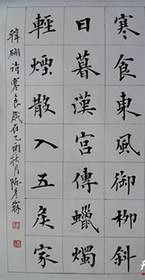 寒食東風御柳斜
日暮漢宮傳蠟燭
輕煙散入五侯家
韓翃詩寒食歲在乙酉秋月